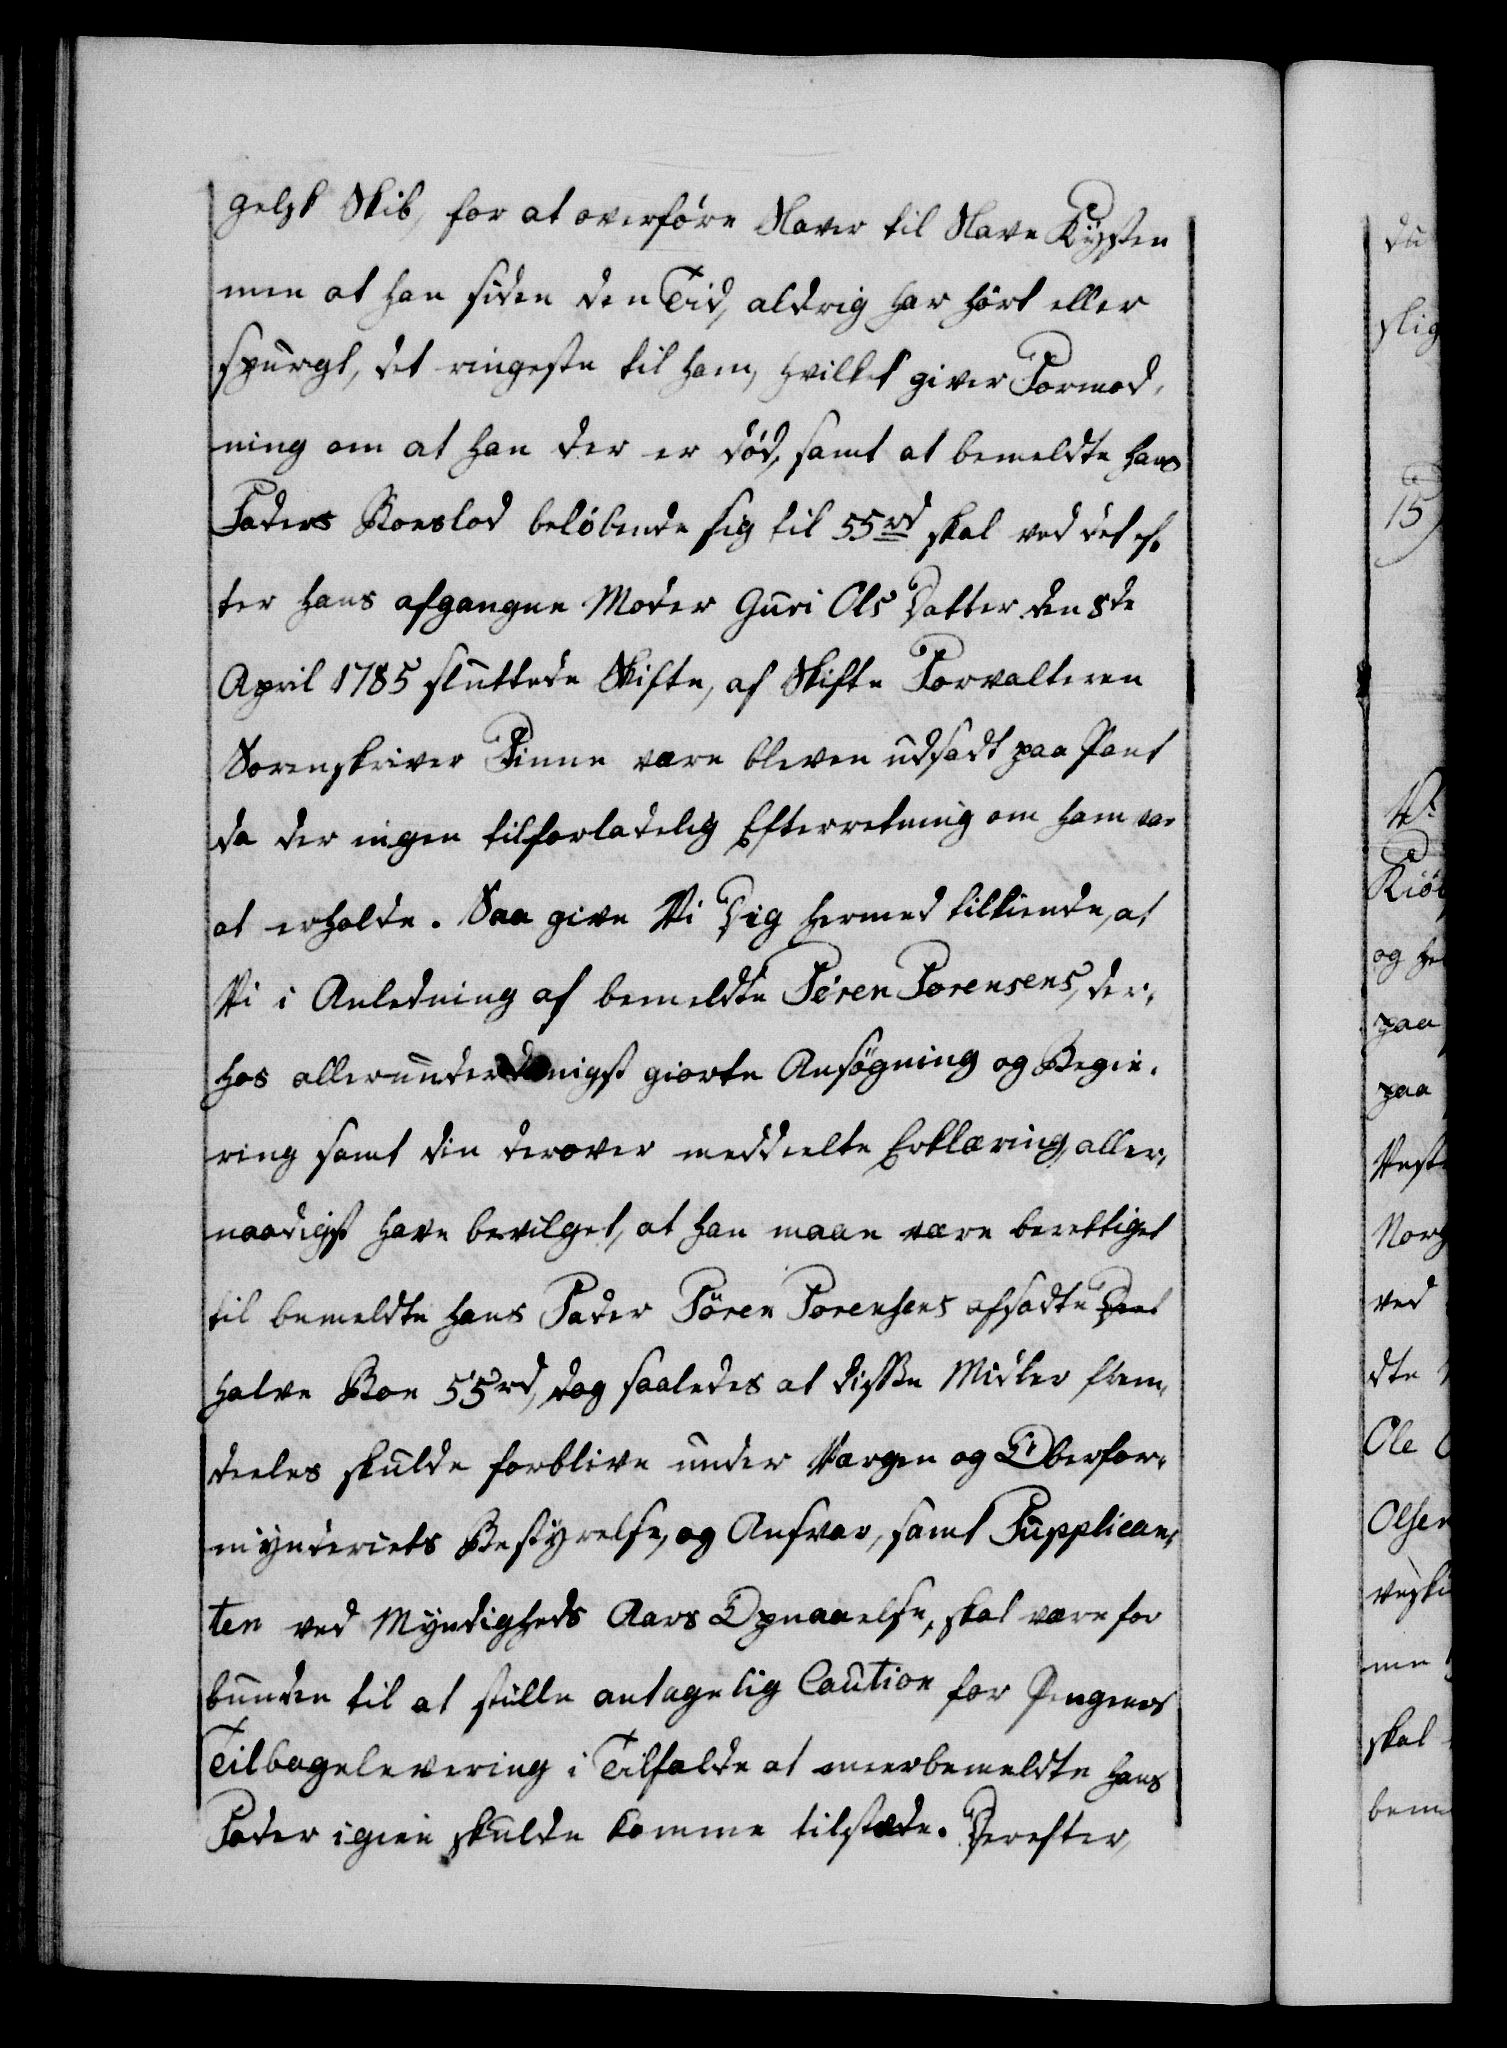 gelsk Skib, for at overføre Slaver til Slave Kÿsten
men at han siden den Tid, aldrig har hørt eller
spurgt, det ringeste til ham, hvilket giver Formod,
ning om at han der er død, samt at bemeldte hans
Faders Boeslod beløbende sig til 55rd skal ved det ef,
ter hans afgangne Moder Guri Ols Datter den 8de
April 1785 sluttede Skifte, af Skifte Forvalteren
Sorenskriver Finne være bleven udsadt paa Pant
da der ingen tilforladelig Efterretning om ham var
at erholde. Saa give Vi Dig hermed tilkiende, at
Vi i Anledning af bemeldte Søren Sørensens, der,
hos allerunderdanigst giorte Ansøgning og Begie,
ring samt din derover meddeelte Erklæring, aller,
naadigst have bevilget, at han maae være berettiget
til bemeldte hans Fader Søren Sorensens afsadte
halve Boe 55rd, dog saaledes at disse Midler frem,
deeles skulde forblive under Værgen og Overfor,
mÿnderiets Bestÿrelse, og Ansvar, samt Supplican,
ten ved Mÿndigheds Aars Opnaaelse, skal være for
bunden til at stille antagelig Caution for Pengenes
Tilbagelevering i Tilfælde at meerbemeldte hans
Fader igien skulde komme tilstæde. Derefter,